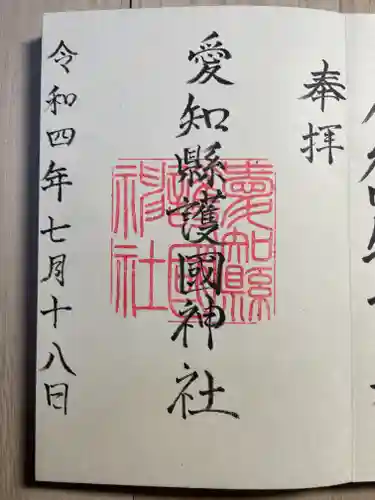 奉拝
愛知縣護國神社
愛知縣護國神社
令和四年七月十八日